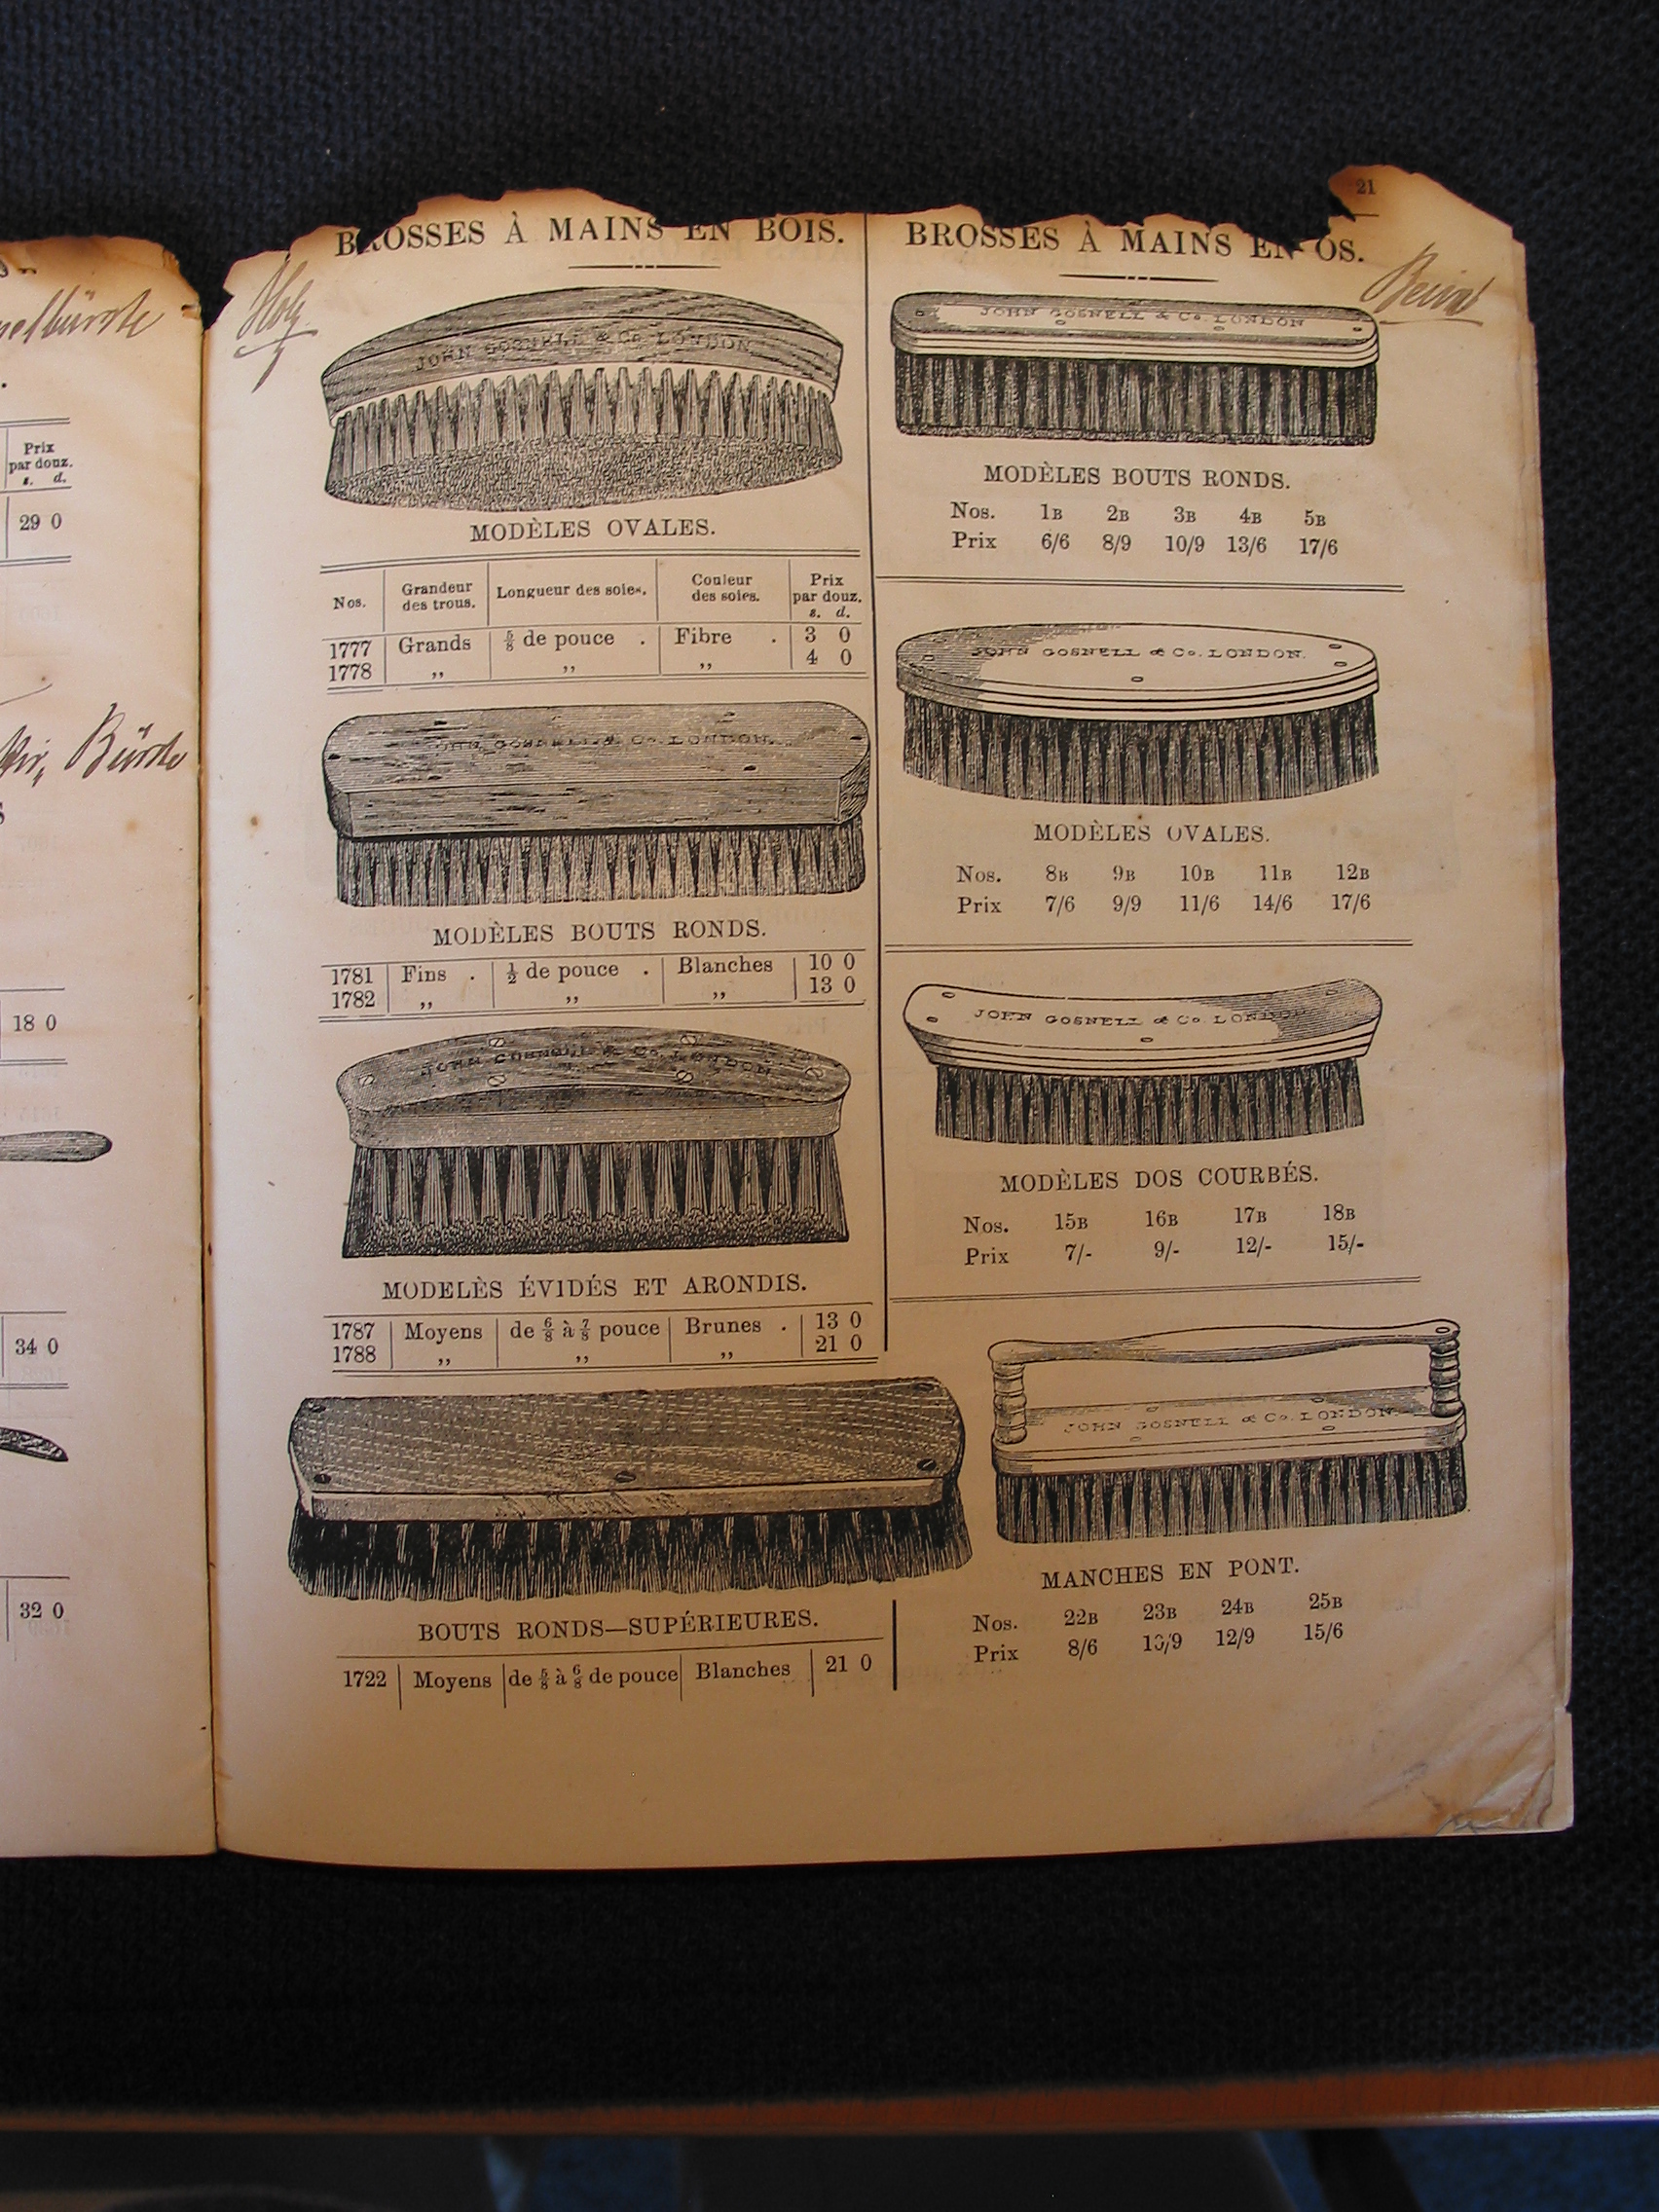 nelbürste
Prix
par douz.
s. d.
29 0
Bürste
18 0
34 0
32 0
21
BROSSES À MAINS EN BOIS.
Holz
JOHN GOSNELL & Co. LONDON
MODÈLES OVALES.
Nos. Grandeur des trous. Longueur des soies. Couleur des soies. Prix par douz. s. d.
1777 Grands 5/8 de pouce . Fibre . 3 0
1778 ,, ,, ,, 4 0
JOHN GOSNELL & Co. LONDON.
MODÈLES BOUTS RONDS.
1781 Fins . 1/2 de pouce . Blanches 10 0
1782 ,, ,, ,, 13 0
JOHN GOSNELL & Co. LONDON
MODELÈS ÉVIDÉS ET ARONDIS.
1787 Moyens de 6/8 à 7/8 pouce Brunes . 13 0
1788 ,, ,, ,, 21 0
BOUTS RONDS—SUPÉRIEURES.
1722 Moyens de 5/8 à 6/8 de pouce Blanches 21 0
BROSSES À MAINS EN OS.
JOHN GOSNELL & Co. LONDON
MODÈLES BOUTS RONDS.
Nos. 1B 2B 3B 4B 5B
Prix 6/6 8/9 10/9 13/6 17/6
JOHN GOSNELL & Co. LONDON.
MODÈLES OVALES.
Nos. 8B 9B 10B 11B 12B
Prix 7/6 9/9 11/6 14/6 17/6
JOHN GOSNELL & Co. LONDON
MODÈLES DOS COURBÉS.
Nos. 15B 16B 17B 18B
Prix 7/- 9/- 12/- 15/-
JOHN GOSNELL & Co. LONDON
MANCHES EN PONT.
Nos. 22B 23B 24B 25B
Prix 8/6 10/9 12/9 15/6